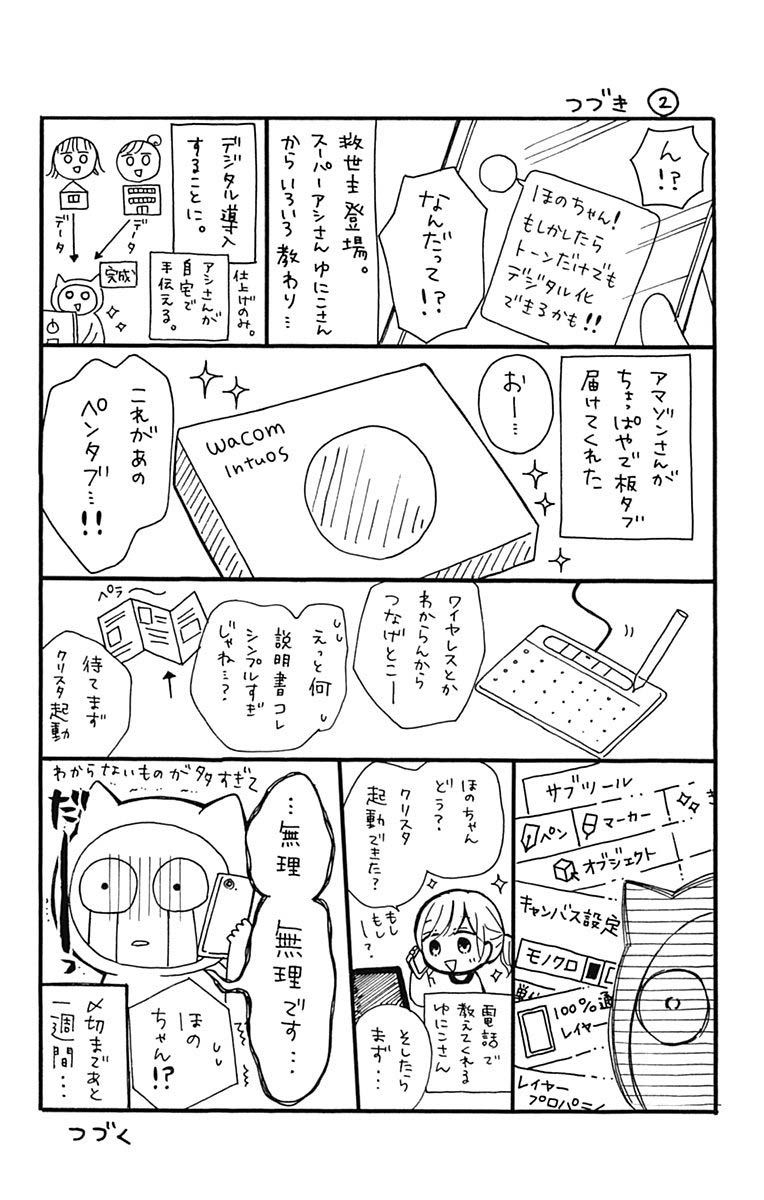 つづき ②
ん!?
ほのちゃん!
もしかしたら
トーンだけでも
デジタル化
できるかも!!
なんだって!?
救世主登場。
スーパーアシさんゆにこさん
からいろいろ教わり…
デジタル導入
することに。
仕上げのみ。
アシさんが
自宅で
手伝える。
データ
データ
完成
アマゾンさんが
ちょっぱやで板タブ
届けてくれた
おー…
wacom
Intuos
これがあの
ペンタブ…!!
ワイヤレスとか
わからんから
つなげとこー
えっと何
説明書コレ
シンプルすぎ
じゃね…?
ペラ
待てまず
クリスタ起動
サブツール
ペン
マーカー
オブジェクト
キャンバス設定
モノクロ
100%
レイヤー
レイヤー
プロパティ
ほのちゃん
どう?
クリスタ
起動できた?
もし
もしー?
電話で
教えてくれる
ゆにこさん
そしたら
まず…
わからないものが多すぎて
…無理
無理です…
だーっ
ほの
ちゃん!?
〆切まであと
一週間…
つづく